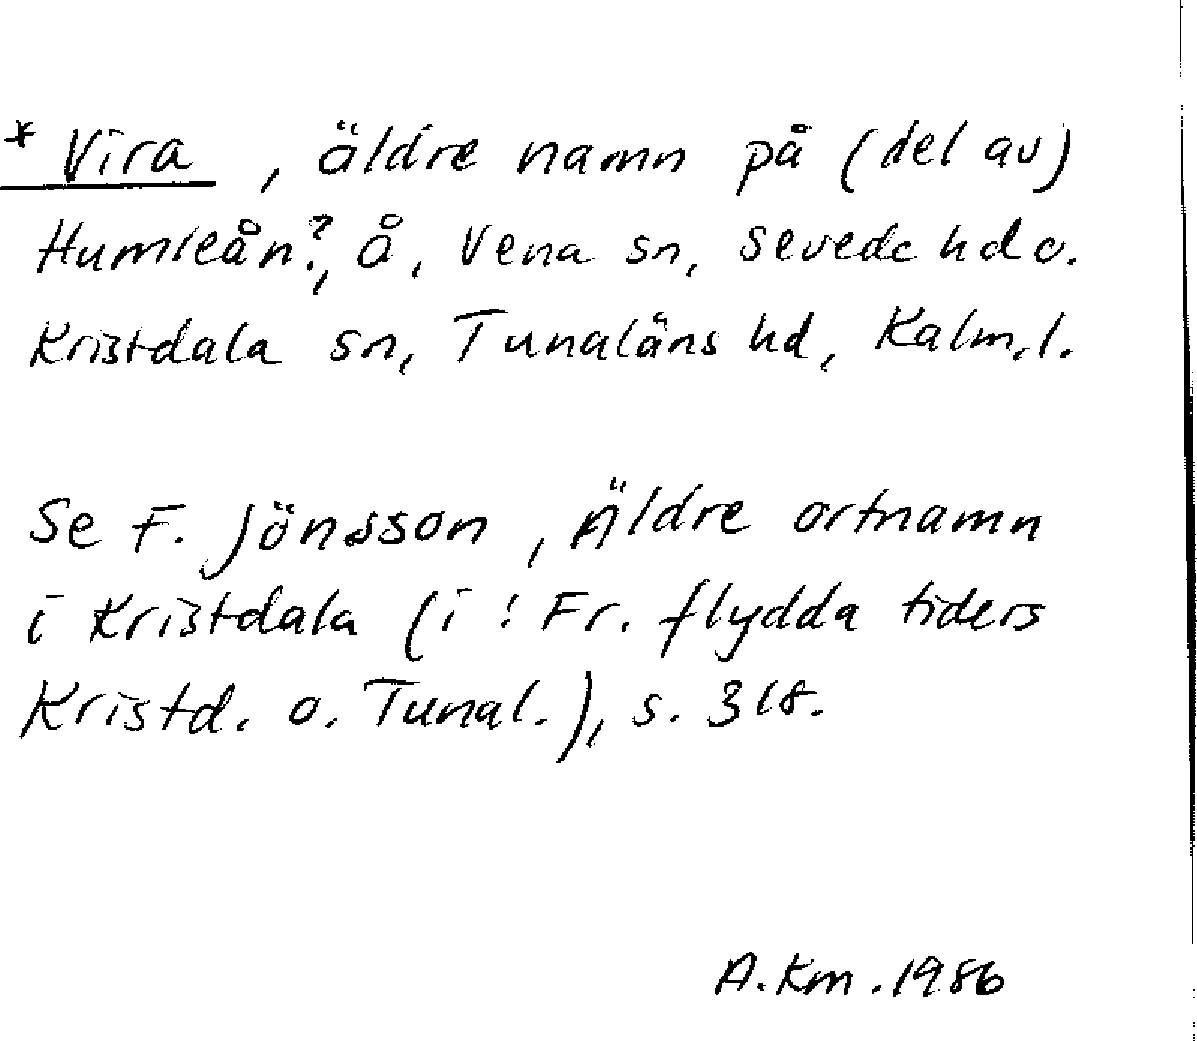 * Vira, äldre namn på (del av)
Humleån?, å, Vena sn, Sevede hd o.
Kristdala sn, Tunaläns hd, Kalm.l.
Se F. Jönsson, Äldre ortnamn
i Kristdala (i: Fr. flydda tiders
Kristd. o. Tunal.), s. 318.
A.Km.1986